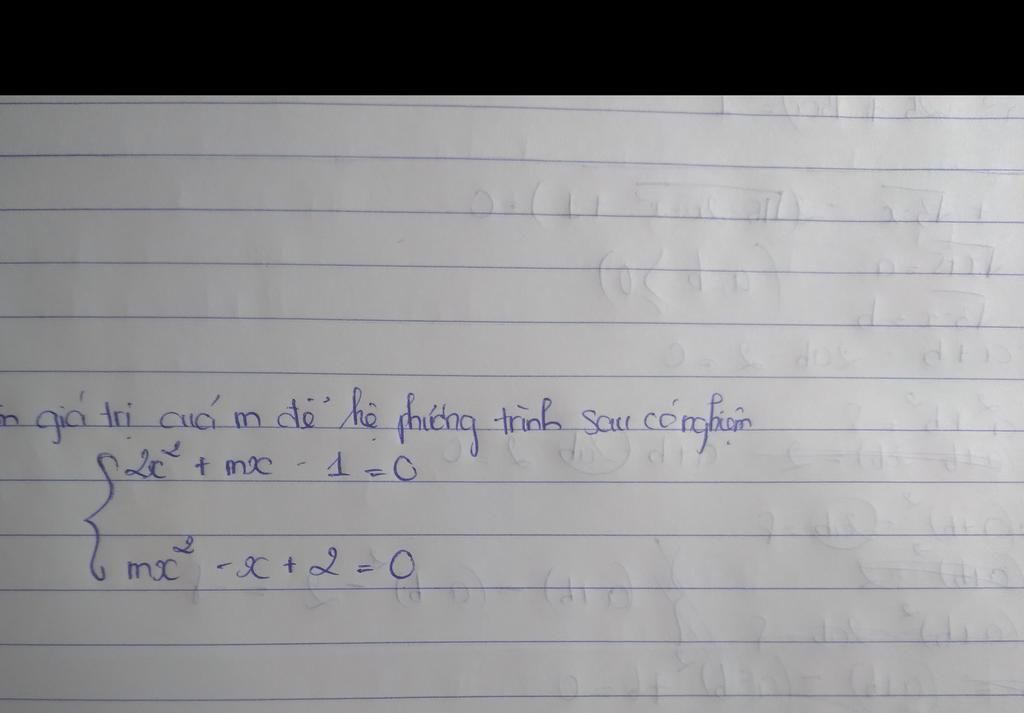 giá trị cuả m để hệ phương trình sau có nghiệm
2x² + mx - 1 = 0
mx² - x + 2 = 0